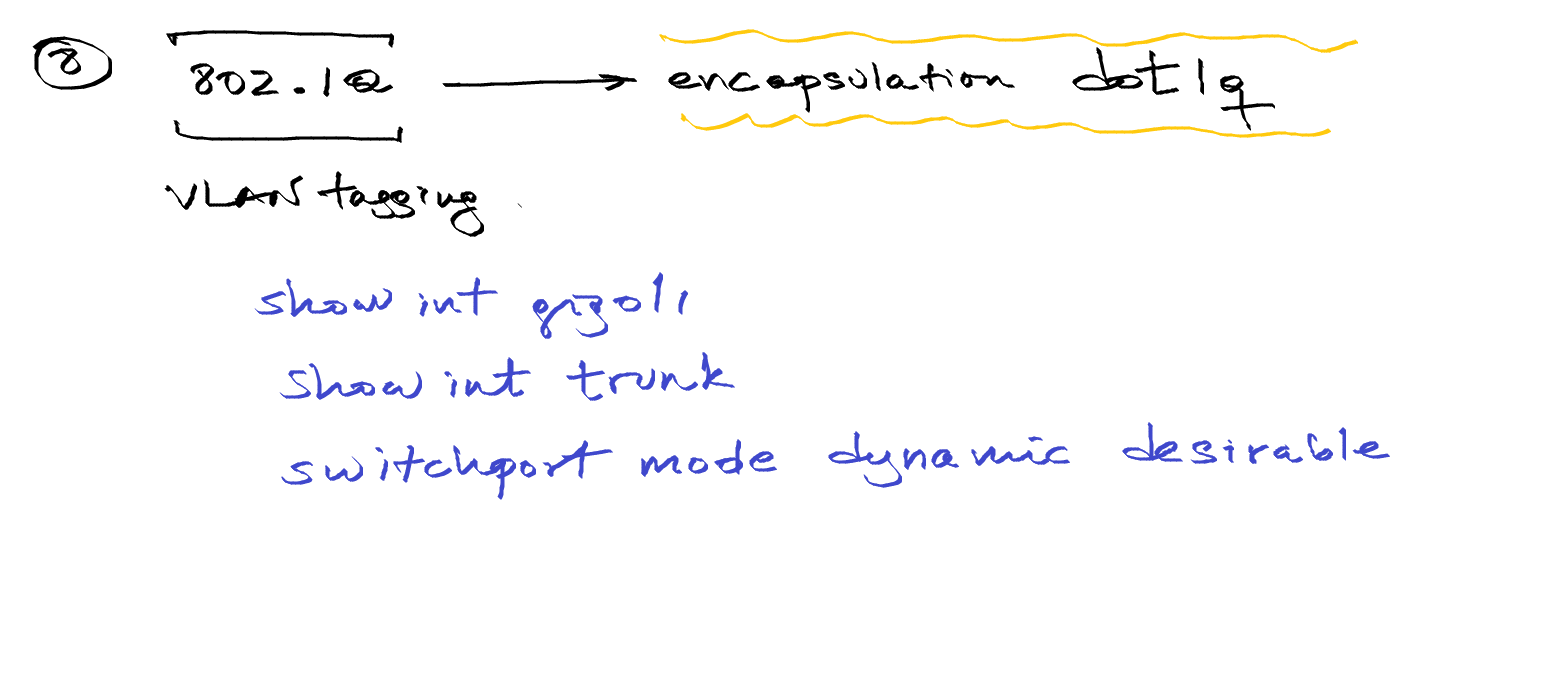 8 802.1Q → encapsulation dot1q
VLAN tagging
show int gig0/1
show int trunk
switchport mode dynamic desirable